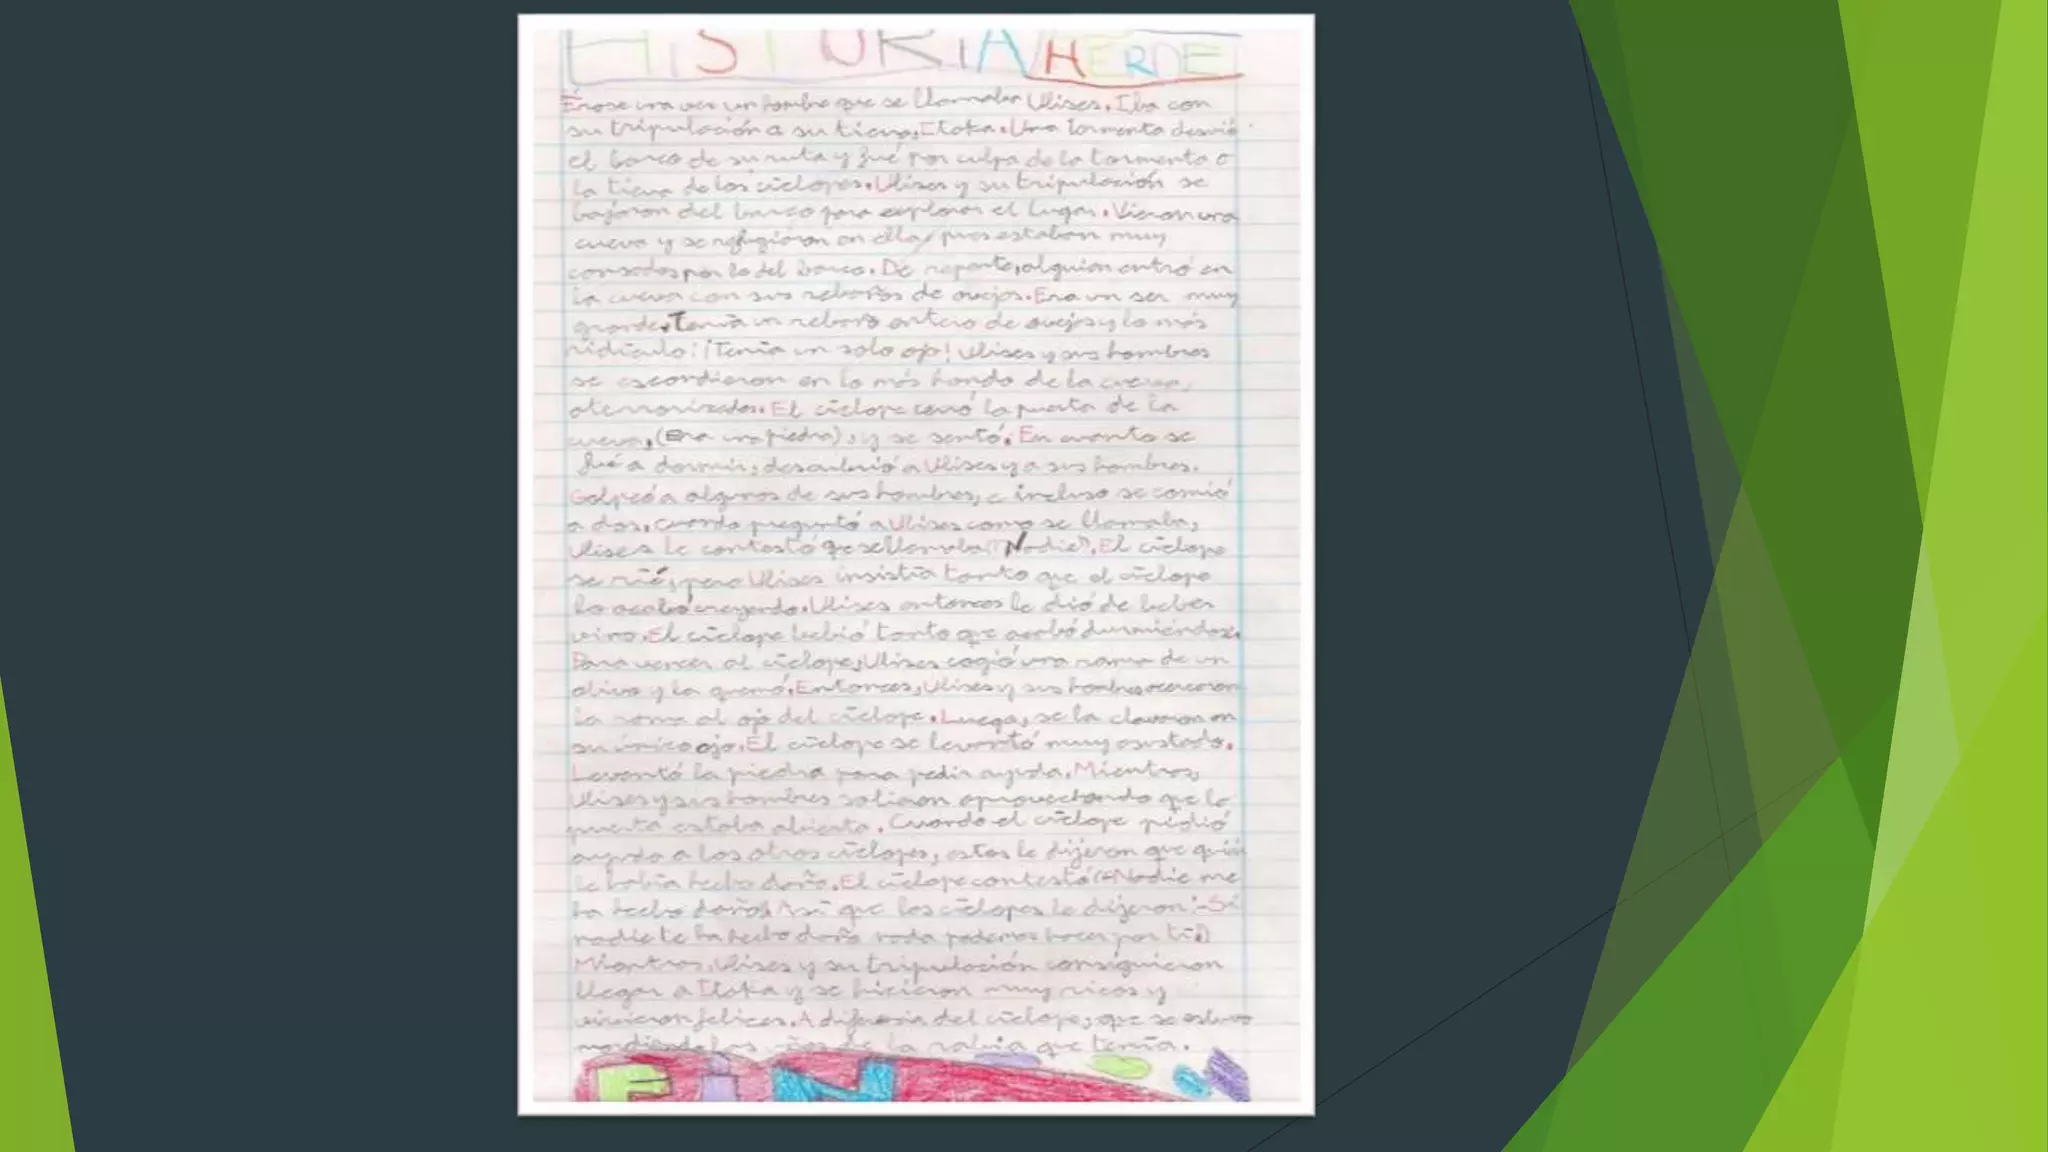 HISTORIA HÉROE
Érase una vez un hombre que se llamaba Ulises. Iba con
su tripulación a su tierra, Itaka. Una tormenta desvió
el barco de su ruta y fué por culpa de la tormenta a
la tierra de los cíclopes. Ulises y su tripulación se
bajaron del barco para explorar el lugar. Vieron una
cueva y se refugiaron en ella, pues estaban muy
cansados por lo del barco. De repente, alguien entró en
la cueva con sus rebaños de ovejas. Era un ser muy
grande. Tenía un rebaño entero de ovejas y lo más
ridículo: ¡Tenía un solo ojo! Ulises y sus hombres
se escondieron en lo más hondo de la cueva,
aterrorizados. El cíclope cerró la puerta de la
cueva, (Era una piedra), y se sentó. En cuanto se
fué a dormir, descubrió a Ulises y a sus hombres.
Golpeó a algunos de sus hombres, e incluso se comió
a dos. Cuando preguntó a Ulises como se llamaba,
Ulises le contestó que se llamaba "Nadie". El cíclope
se rió, pero Ulises insistía tanto que el cíclope
lo acabó creyendo. Ulises entonces le dió de beber
vino. El cíclope bebió tanto que acabó durmiéndose.
Para vencer al cíclope, Ulises cogió una rama de un
olivo y la quemó. Entonces, Ulises y sus hombres acercaron
la rama al ojo del cíclope. Luego, se la clavaron en
su único ojo. El cíclope se levantó muy asustado.
Levantó la piedra para pedir ayuda. Mientras,
Ulises y sus hombres salieron aprovechando que la
puerta estaba abierta. Cuando el cíclope pidió
ayuda a los otros cíclopes, estos le dijeron que quién
le había hecho daño. El cíclope contestó "Nadie me
ha hecho daño". Así que los cíclopes le dijeron: -Si
nadie te ha hecho daño nada podemos hacer por ti.
Mientras, Ulises y su tripulación consiguieron
llegar a Itaka y se hicieron muy ricos y
vivieron felices. A diferencia del cíclope, que se estuvo
mordiendo las uñas de la rabia que tenía.
FIN